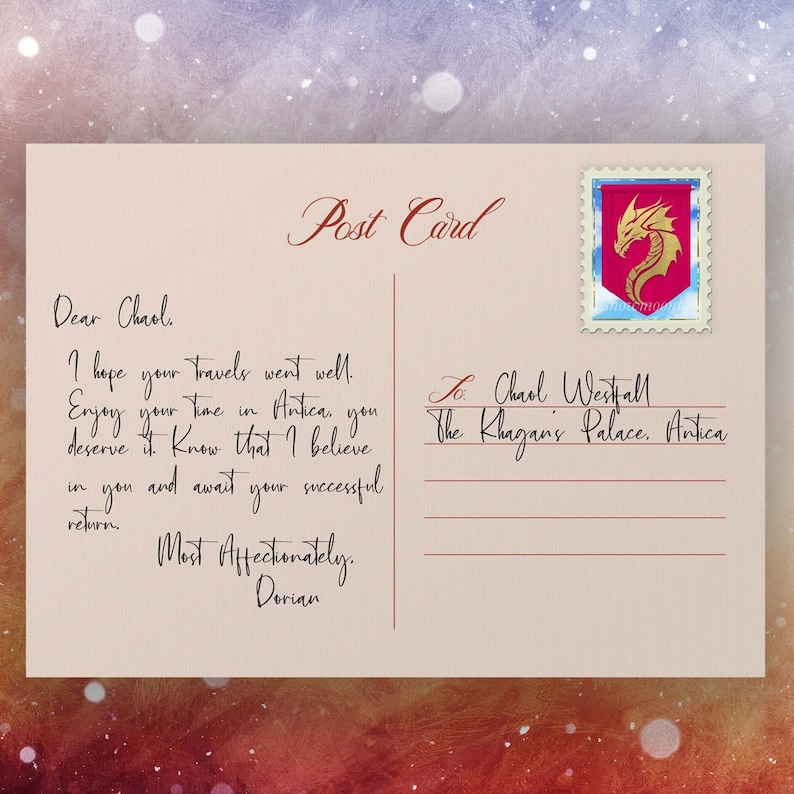 Post Card
Dear Chaol,
I hope your travels went well.
Enjoy your time in Antica, you
deserve it. Know that I believe
in you and await your successful
return.
Most Affectionately,
Dorian
To: Chaol Westfall
The Khagan's Palace, Antica